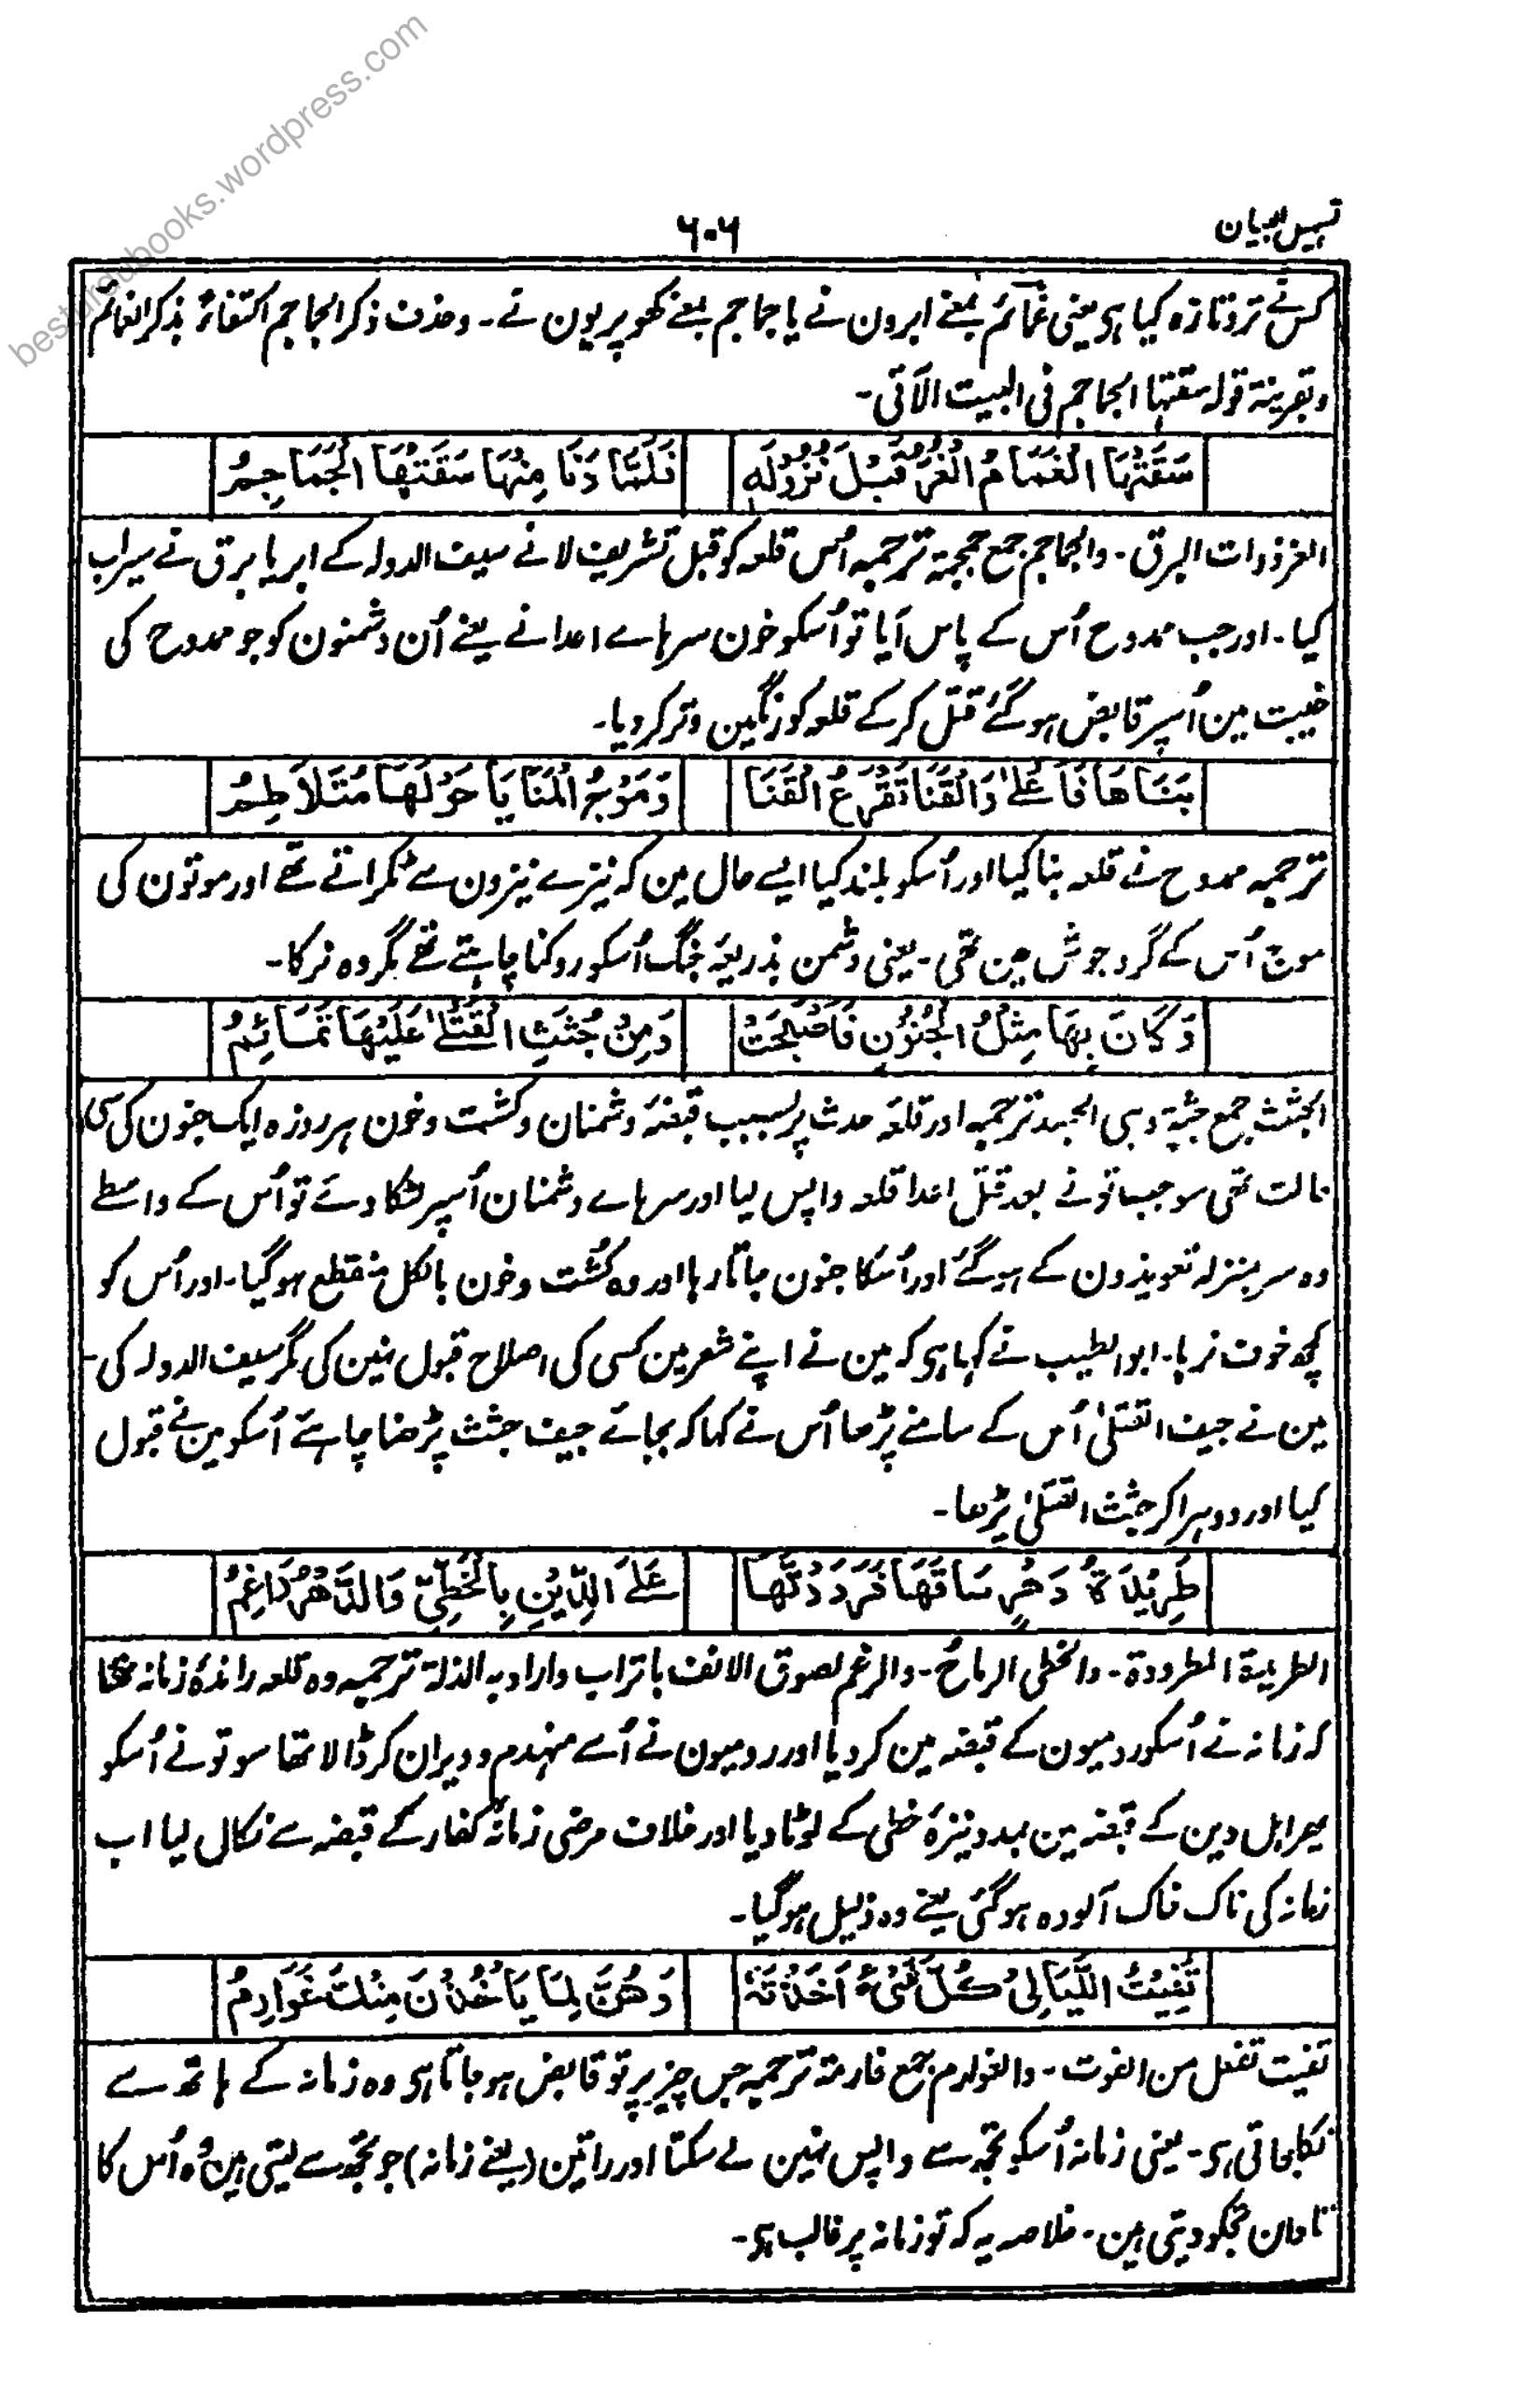 besturdubooks.wordpress.com
تسہیل البیان
۶۰۶
کس نے تروتازہ کیا ہی یعنی غمائم بمعنے ابرون نے یا جماجم بمعنے کھوپریون نے۔ وحذف ذکر الجماجم اکتفاءً بذکر الغمائم
وبقرینۃ قولہ سقتہا الجماجم فی البیت الآتی۔
سَقَتْهَا الْغَمَامُ الْغُرُّ قَبْلَ نُزُوْلِهٖ فَلَمَّا دَنَا مِنْهَا سَقَتْهَا الْجَمَاجِمُ
الغر ذوات البرق۔ والجماجم جمع جمجمۃ ترجمہ اُس قلعہ کو قبل تشریف لانے سیف الدولہ کے ابر با برق نے سیراب
کیا۔ اور جب ممدوح اُس کے پاس آیا تو اُسکو خون سرہاے اعدا نے یعنے اُن دشمنون کو جو ممدوح کی
غیبت مین اُسپر قابض ہوگئے قتل کرکے قلعہ کو رنگین وتر کردیا۔
بَنَاهَا فَاَعْلٰى وَالْقَنَا تَقْرَعُ الْقَنَا وَمَوْجُ الْمَنَايَا حَوْلَهَا مُتَلَاطِمُ
ترجمہ ممدوح نے قلعہ بنا کیا اور اُسکو بلند کیا ایسے حال مین کہ نیزے نیزون سے ٹکراتے تھے اور موتون کی
موج اُس کے گرد جوش مین تھی۔ یعنی دشمن بذریعۂ جنگ اُسکو روکنا چاہتے تھے مگر وہ نرکا۔
وَكَانَ بِهَا مِثْلُ الْجُنُوْنِ فَاَصْبَحَتْ وَمِنْ جُثَثِ الْقَتْلٰى عَلَيْهَا تَمَائِمُ
الجثث جمع جثۃ وہی الجسد ترجمہ اور قلعۂ حدث پر بسبب قبضۂ دشمنان وکشت وخون ہر روزہ ایک جنون کی سی
حالت تھی سو جب تونے بعد قتل اعدا قلعہ واپس لیا اور سرہاے دشمنان اُسپر لٹکا دئے تو اُس کے واسطے
وہ سر بمنزلہ تعویذون کے ہوگئے اور اُسکا جنون جاتا رہا اور وہ کشت وخون بالکل منقطع ہوگیا۔ اور اُس کو
کچھ خوف نرہا۔ ابوالطیب نے کہا ہی کہ مین نے اپنے شعر مین کسی کی اصلاح قبول نہین کی مگر سیف الدولہ کی۔
مین نے جیف القتلیٰ اُس کے سامنے پڑھا اُس نے کہا کہ بجائے جیف جثث پڑھنا چاہئے اُسکو مین نے قبول
کیا اور دوہرا کر جثث القتلیٰ پڑھا۔
طَرِيْدَةُ دَهْرٍ سَاقَهَا فَرَدَدْتَهَا عَلَى الدِّيْنِ بِالْخَطِّيِّ وَالدَّهْرُ رَاغِمُ
الطریدۃ المطرودۃ۔ والخطی الرماح۔ والرغم لصوق الانف بالتراب وارادبہ الذلۃ ترجمہ وہ قلعہ راندۂ زمانہ تھا
کہ زمانہ نے اُسکو رومیون کے قبضہ مین کردیا اور رومیون نے اُسے منہدم و ویران کرڈالا تھا سو تونے اُسکو
پھر اہل دین کے قبضہ مین بمدد نیزۂ خطی کے لوٹا دیا اور خلاف مرضی زمانہ کفار کے قبضہ سے نکال لیا اب
زمانہ کی ناک خاک آلودہ ہوگئی یعنے وہ ذلیل ہوگیا۔
تُفِيْتُ اللَّيَالِيْ كُلَّ شَيْءٍ اَخَذْتَهٗ وَهُنَّ لِمَا يَأْخُذْنَ مِنْكَ غَوَارِمُ
تفیت تفعل من الفوت۔ والغوارم جمع غارمۃ ترجمہ جس چیز پر تو قابض ہوجاتا ہی وہ زمانہ کے ہاتھ سے
نکلجاتی ہی۔ یعنی زمانہ اُسکو تجھ سے واپس نہین لے سکتا اور راتین (یعنے زمانہ) جو تجھ سے لیتی ہین وہ اُس کا
تاوان تجکو دیتی ہین۔ خلاصہ یہ کہ تو زمانہ پر غالب ہی۔